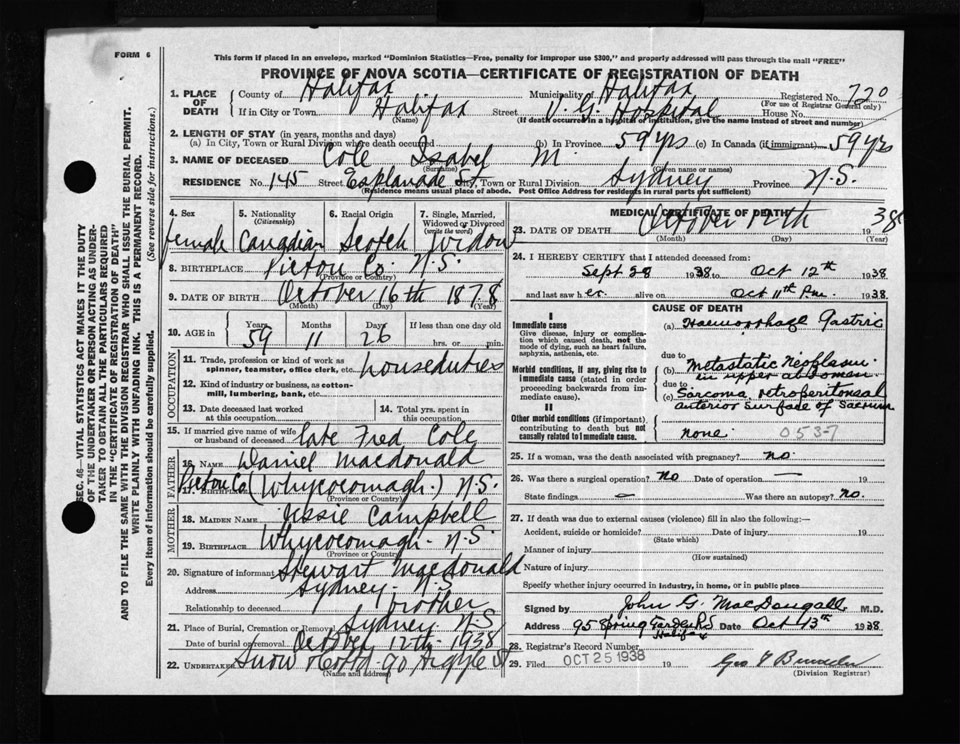 FORM 6
This form if placed in an envelope, marked "Dominion Statistics—Free, penalty for improper use $300," and properly addressed will pass through the mail "FREE"
PROVINCE OF NOVA SCOTIA—CERTIFICATE OF REGISTRATION OF DEATH
SEC. 46—VITAL STATISTICS ACT MAKES IT THE DUTY
OF THE UNDERTAKER OR PERSON ACTING AS UNDER-
TAKER TO OBTAIN ALL THE PARTICULARS REQUIRED
IN THE "CERTIFICATE OF REGISTRATION OF DEATH"
AND TO FILE THE SAME WITH THE DIVISION REGISTRAR WHO SHALL ISSUE THE BURIAL PERMIT.
WRITE PLAINLY WITH UNFADING INK. THIS IS A PERMANENT RECORD.
Every item of information should be carefully supplied. (See reverse side for instructions.)
1. PLACE OF DEATH
County of Halifax Municipality of Halifax Registered No. 720
(For use of Registrar General only)
If in City or Town Halifax Street V. G. Hospital House No.
(Name) (If death occurred in a hospital or institution, give the name instead of street and number)
2. LENGTH OF STAY (in years, months and days)
(a) In City, Town or Rural Division where death occurred (b) In Province 59 yrs (c) In Canada (if immigrant) 59 yrs
3. NAME OF DECEASED Cole Isabel M
(Surname) (Given name or names)
RESIDENCE No. 145 Street Esplanade St. City, Town or Rural Division Sydney Province N.S.
(Residence means usual place of abode. Post Office Address for residents in rural parts not sufficient)
4. Sex 5. Nationality (Citizenship) 6. Racial Origin 7. Single, Married, Widowed or Divorced (write the word)
female Canadian Scotch Widow
8. BIRTHPLACE Pictou Co. N.S.
(Province or Country)
9. DATE OF BIRTH October 16th 1878
(Month) (Day) (Year)
10. AGE in Years Months Days If less than one day old
59 11 26 hrs. or min.
OCCUPATION
11. Trade, profession or kind of work as spinner, teamster, office clerk, etc. houseduties
12. Kind of industry or business, as cotton-mill, lumbering, bank, etc.
13. Date deceased last worked at this occupation 14. Total yrs. spent in this occupation
15. If married give name of wife or husband of deceased late Fred Cole
FATHER
16. NAME Daniel Macdonald
17. BIRTHPLACE Pictou Co (Whycocomagh.) N.S.
(Province or Country)
MOTHER
18. MAIDEN NAME Jessie Campbell
19. BIRTHPLACE Whycocomagh. N.S.
(Province or Country)
20. Signature of informant Stewart Macdonald
Address Sydney. N.S.
Relationship to deceased brother
21. Place of Burial, Cremation or Removal Sydney. N.S
Date of burial or removal October 12th. 1938
22. UNDERTAKER Snow & Co Ltd 90 Argyle St
(Name and address)
MEDICAL CERTIFICATE OF DEATH
23. DATE OF DEATH October 12th 1938
(Month) (Day) (Year)
24. I HEREBY CERTIFY that I attended deceased from:
Sept 28 1938 to Oct 12th 1938
and last saw her alive on Oct 11th P.m. 1938
CAUSE OF DEATH
I
Immediate cause
Give disease, injury or complication which caused death, not the mode of dying, such as heart failure, asphyxia, asthenia, etc.
(a) Haemorrhage Gastric
due to
Morbid conditions, if any, giving rise to immediate cause (stated in order proceeding backwards from immediate cause)
(b) Metastatic Neoplasm. in upper abdomen
due to
(c) Sarcoma retroperitoneal anterior surface of Sacrum
II
Other morbid conditions (if important) contributing to death but not causally related to immediate cause.
none 0537
25. If a woman, was the death associated with pregnancy? no.
26. Was there a surgical operation? no Date of operation — 19
State findings — Was there an autopsy? no.
27. If death was due to external causes (violence) fill in also the following:—
Accident, suicide or homicide? Date of injury 19
(State which)
Manner of injury
(How sustained)
Nature of injury
Specify whether injury occurred in industry, in home, or in public place
Signed by John G. MacDougall M.D.
Address 95 Spring Garden Rd Halifax Date Oct 13th 1938
28. Registrar's Record Number
29. Filed OCT 25 1938 19
(Division Registrar)